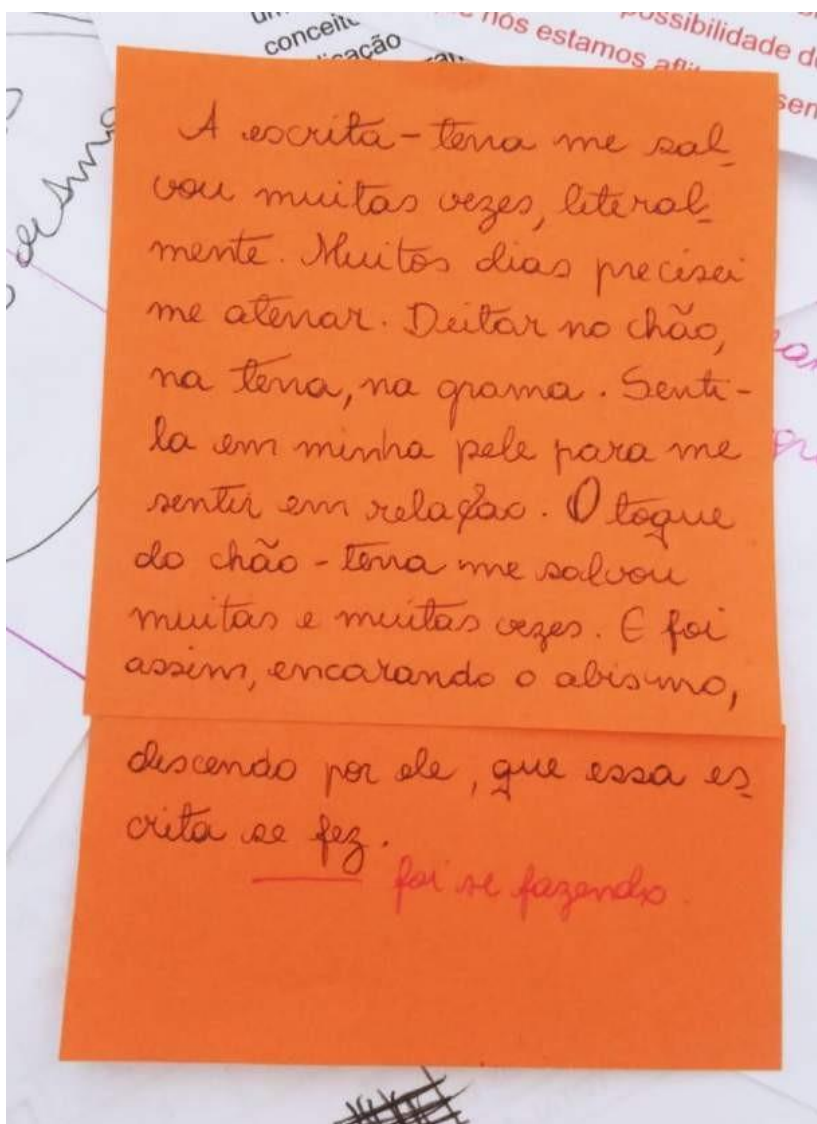 conceito
nós estamos
possibilidade de
A escrita-terra me sal_
vou muitas vezes, literal_
mente. Muitos dias precisei
me aterrar. Deitar no chão,
na terra, na grama. Senti-
la em minha pele para me
sentir em relação. O toque
do chão-terra me salvou
muitas e muitas vezes. E foi
assim, encarando o abismo,
descendo por ele, que essa es_
crita se fez.
foi se fazendo.